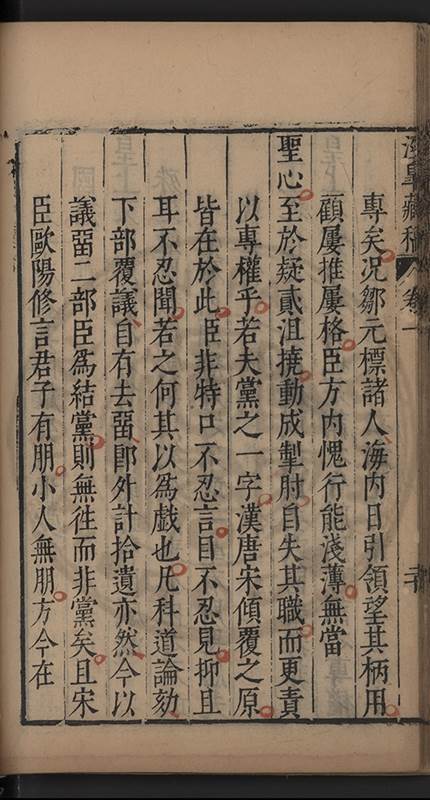 涇皐藏稿 卷一
專矣況鄒元標諸人海内日引領望其柄用
顧屢推屢格臣方内愧行能淺薄無當
聖心至於疑貳沮撓動成掣肘自失其職而更責
以專權乎若夫黨之一字漢唐宋傾覆之原
皆在於此臣非特口不忍言目不忍見抑且
耳不忍聞若之何其以爲戯也凡科道論劾
下部覆議自有去留卽外計拾遺亦然今以
議留二部臣爲結黨則無徃而非黨矣且宋
臣歐陽修言君子有朋小人無朋方今在